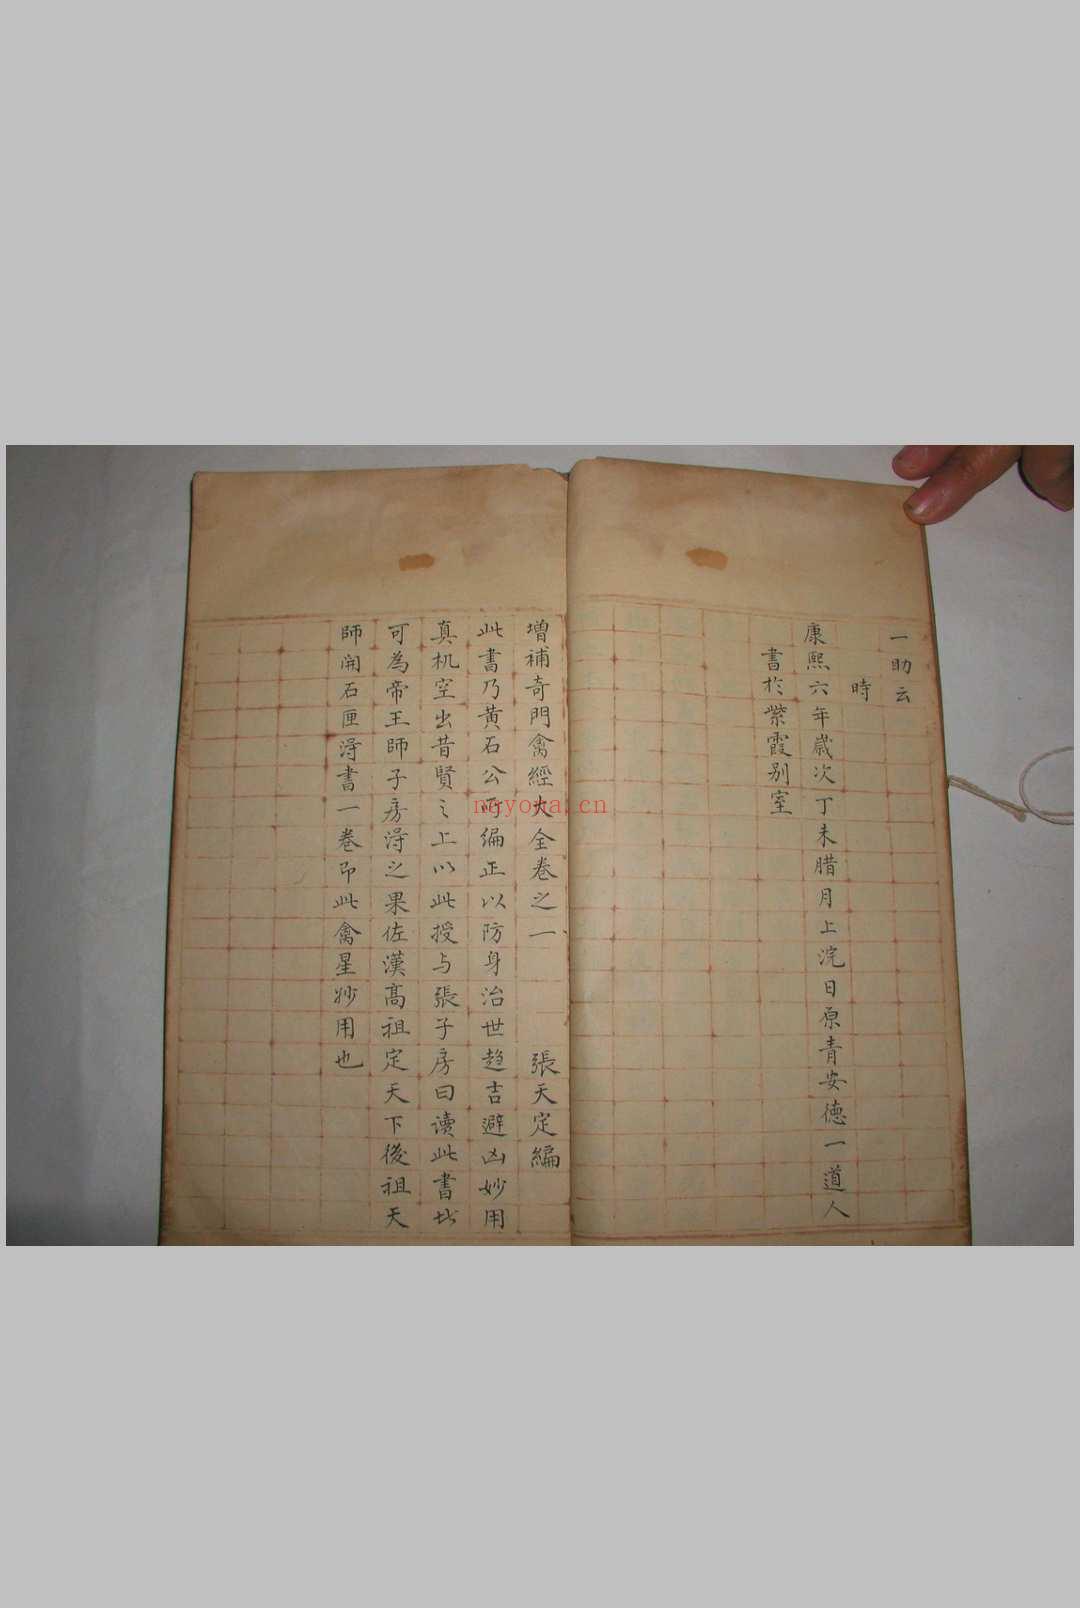 一助云
時
康熙六年歲次丁未腊月上浣日原青安德一道人
書於紫霞别室
增補奇門禽經大全卷之一 張天定編
此書乃黃石公所編正以防身治世趋吉避凶妙用
真机空出昔賢之上以此授与張子房曰讀此書
可為帝王師子房淂之果佐漢高祖定天下後祖天
師開石匣淂書一卷即此禽星妙用也
nayona.cn